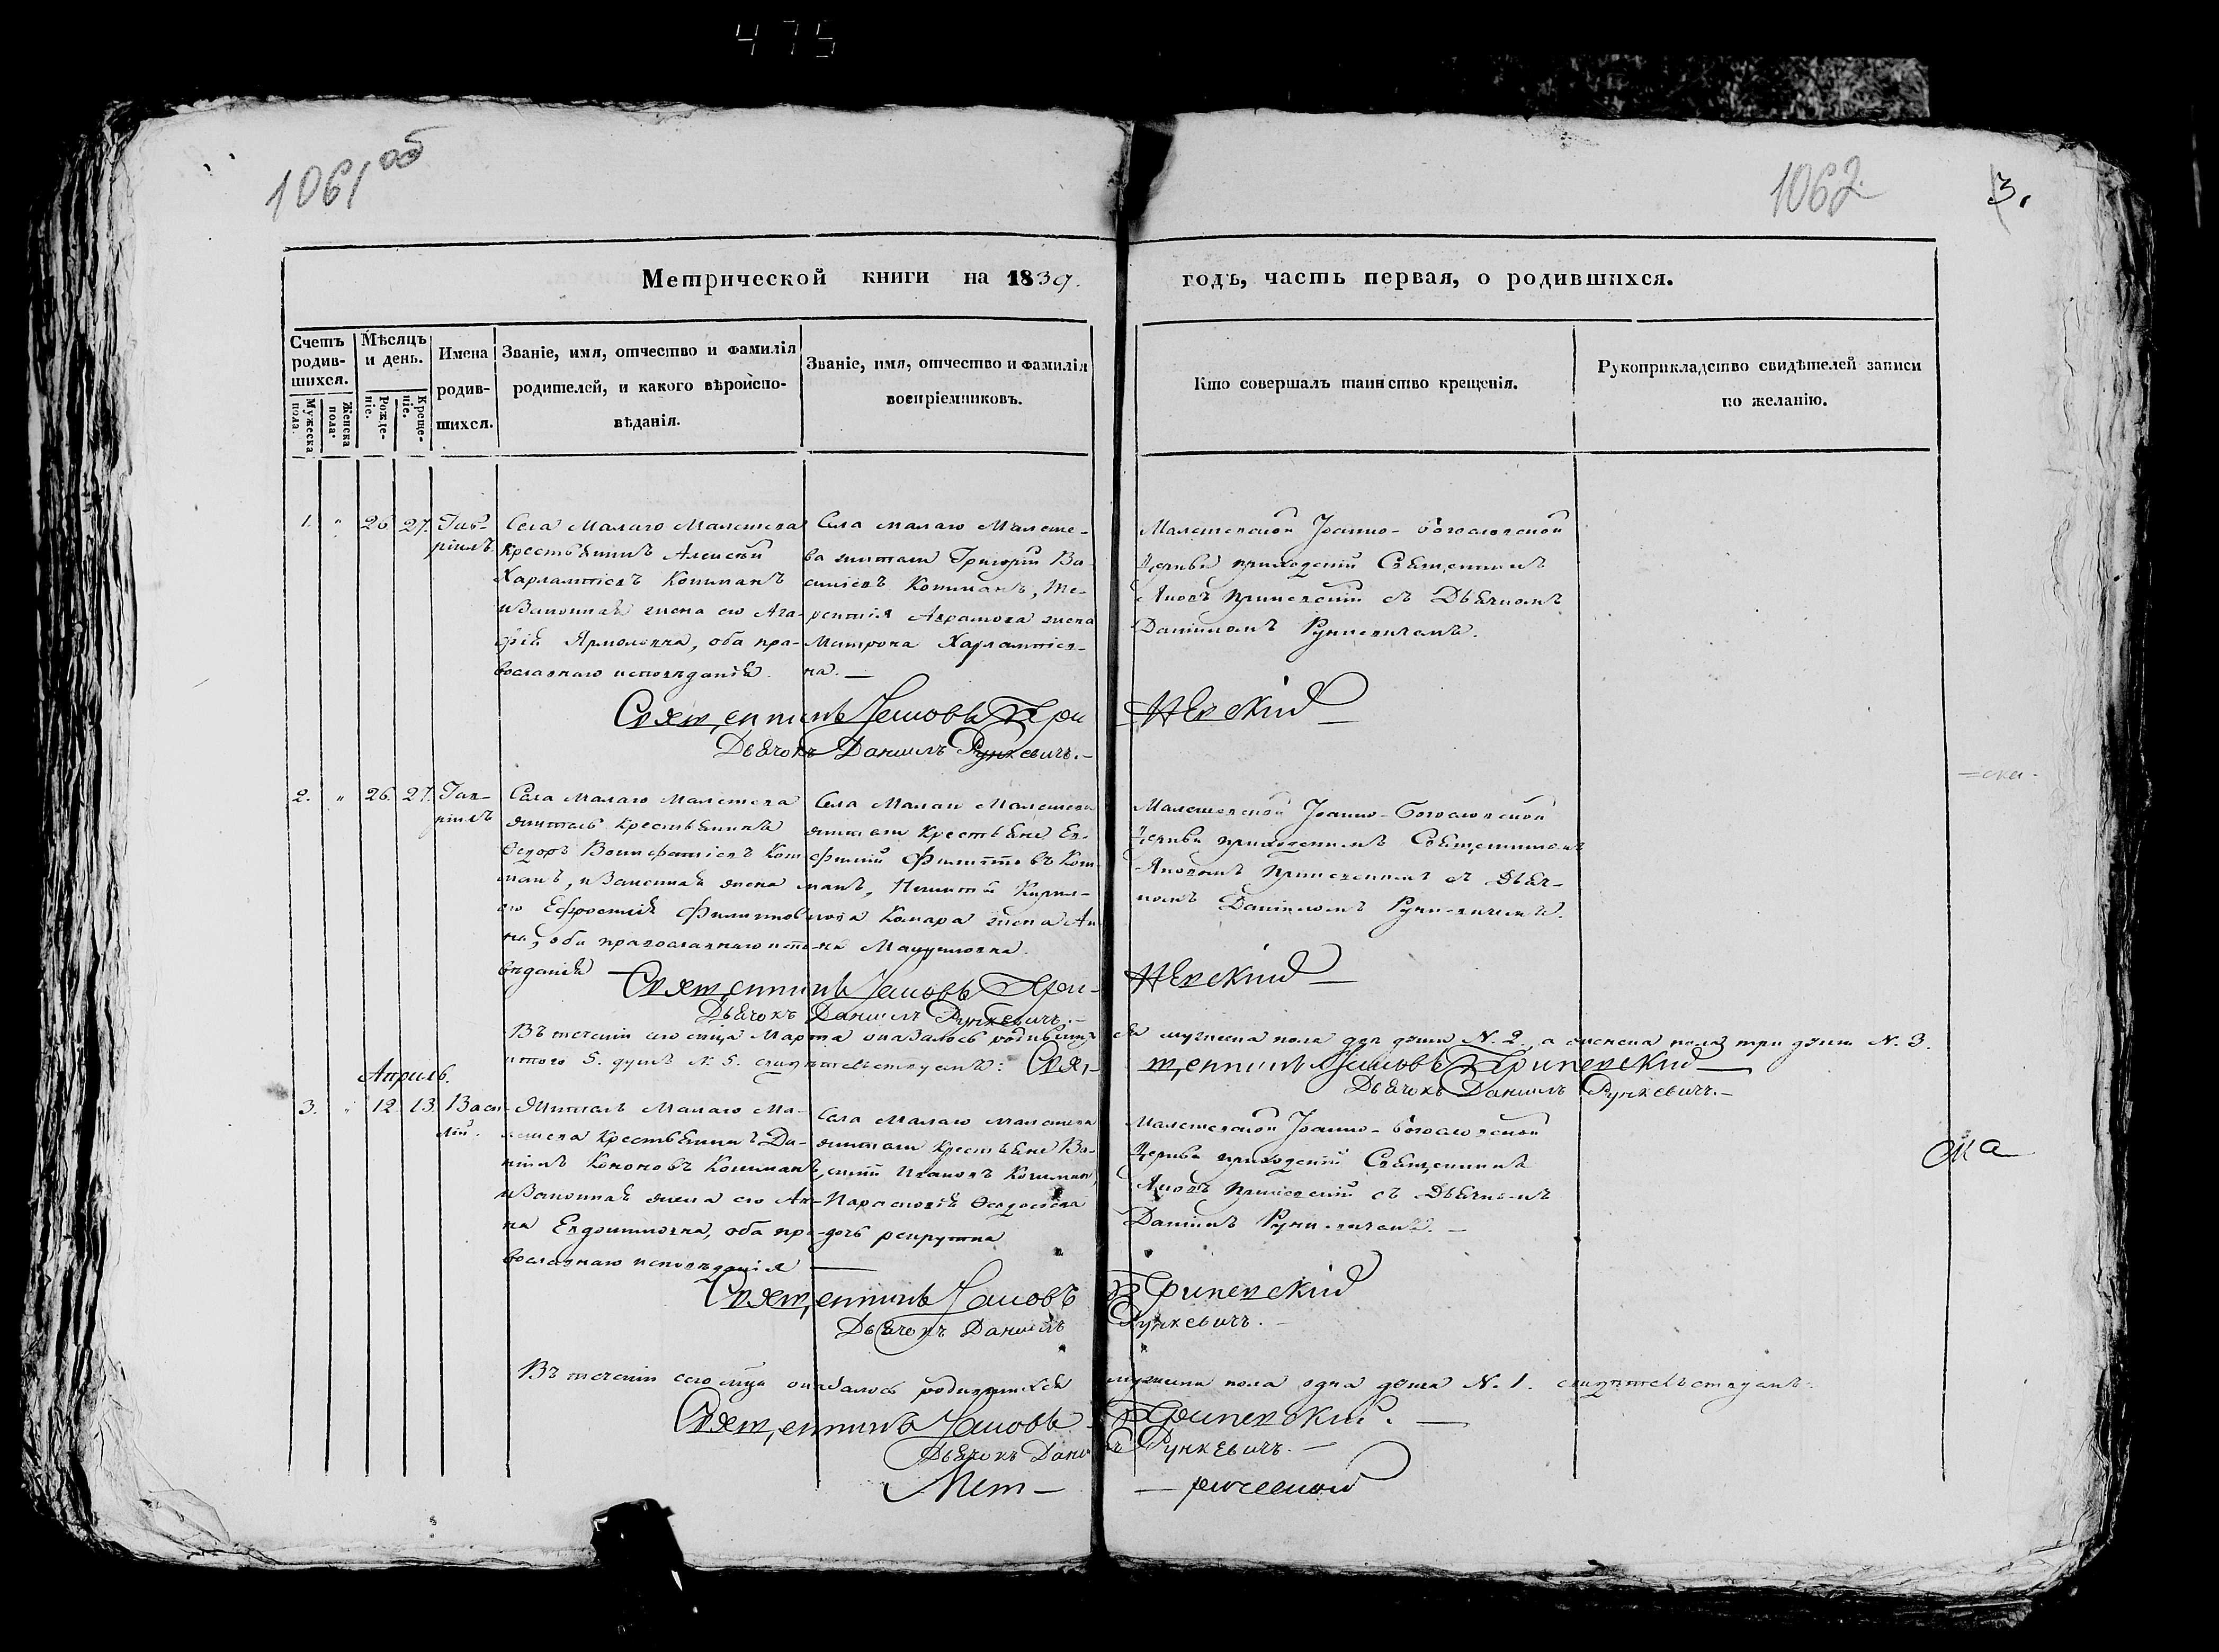 475
1061 об
1062
3.
Метрической книги на 1839. годъ, часть первая, о родившихся.
Счетъ родив-шихся.
Мужеска пола.
Женска пола.
Мѣсяцъ и день.
Рожде-ніе.
Креще-ніе.
Имена родив-шихся.
Званіе, имя, отчество и фамилія
родителей, и какого вѣроиспо-
вѣданія.
Званіе, имя, отчество и фамилія
воспріемниковъ.
Кто совершалъ таинство крещенія.
Рукоприкладство свидѣтелей записи
по желанію.
1. " 26. 27. Гав-
ріилъ.
Села Малаго Малешева
крестьянинъ Алексѣй
Харлампіевъ Кошманъ
и законная жена его Ага-
фія Ярмоловна, оба пра-
вославнаго исповѣданія.
Села малаго Малеше-
ва жители Григорій Ва-
силіевъ Кошманъ, Те-
рентія Аврамова жена
Матрона Харлампіев-
на. —
Малешевской Іоанно-Богословской
Церкви приходскій Священникъ
Яковъ Криневскій съ Дьячкомъ
Даніиломъ Рункевичемъ.
Священникъ Яковъ Кри невскій
Дьячокъ Даниилъ Рункевичъ.
2. " 26. 27. Гав-
ріилъ
Села Малаго Малешева
житель крестьянинъ
Ѳедоръ Вонифатіевъ Кош-
манъ, и законная жена
его Ефросинія Филиппов
на, оба православнаго испо-
вѣданія
Села Малаго Малешева
жители крестьяне Ев-
фимій Филипповъ Кош-
манъ, Никиты Кирил-
лова Комара жена Ан
на
Малешевской Іоанно-Богословской
Церкви приходскимъ Священникомъ
Яковомъ Криневскимъ съ Дьяч-
комъ Даніиломъ Рункевичемъ.
Священникъ Яковъ Кри- невскій
Дьячокъ Даниилъ Рункевичъ.
Въ теченіи сего мѣсяца Марта оказалось родивших ся мужеска пола двѣ души N. 2., а женска пола три души N. 3.
итого 5. душъ N. 5. свидѣтельствуемъ: Свя- щенникъ Яковъ Криневскій
Дьячокъ Даниилъ Рункевичъ.
Апрѣль.
3. " 12. 13. Васи-
лій.
Житель Малаго Ма-
лешева крестьянинъ Да-
ніилъ Кононовъ Кошманъ
и законная жена его Ан-
на Евдокимовна, оба пра-
вославнаго исповѣданія
Села Малаго Малешева
жители крестьяне Ва-
силій Ивановъ Кошманъ,
Параскевія Ѳедосѣева
дочь рекрутка
Малешевской Іоанно-Богословской
Церкви приходскій Священникъ
Яковъ Криневскій съ Дьячкомъ
Даніилъ Рункевичемъ. —
Священникъ Яковъ Криневскій
Дьячокъ Даниилъ Рункевичъ.
Въ теченіи сего мца оказалось родившихся мужеска пола одна душа N. 1. свидѣтельствуемъ:
Священникъ Яковъ Криневскій.
Дьячокъ Данилъ Рункевичъ. —
Мет- -рической